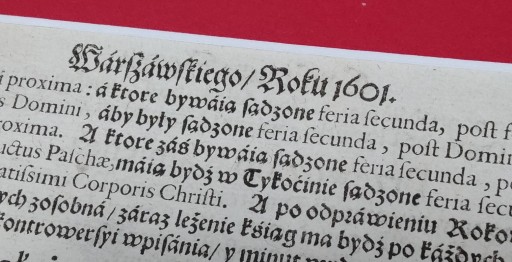 Wárszáwskiego/ Roku 1601.
i proxima: á ktore bywáią sądzone feria secunda, post
s Domini, áby były sądzone feria secunda, post Domin
roxima. A ktore záś bywáią sądzone feria secunda,
uctus Paschæ, máią bydź w Tykoćinie sądzone feria secu
ratissimi Corporis Christi. A po odpráwieniu Rokow
ych zosobná/ záraz leżenie kśiąg ma bydź po káżdych
ontrowersyi wpisánia/ y minut